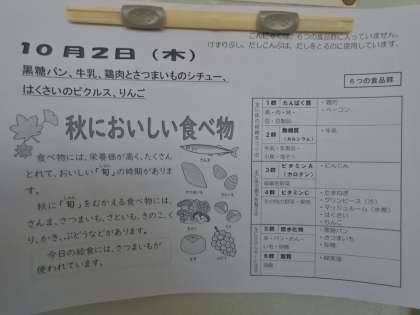 こんにゃくは、6つの食品群に入っていません。
けずりぶし、だしこんぶは、だしをとるのに使用しています。
10月2日（木）
黒糖パン、牛乳、鶏肉とさつまいものシチュー、
はくさいのピクルス、りんご
6つの食品群
秋においしい食べ物
食べ物には、栄養価が高く、たくさん
とれて、おいしい「旬」の時期がありま
す。
秋に「旬」をむかえる食べ物には、
さんま、さつまいも、さといも、きのこ、く
り、かき、ぶどうなどがあります。
今日の給食には、さつまいもが
使われています。
さんま
1群 たんぱく質
・鶏肉
・ベーコン
魚・肉・卵・
豆・豆製品
2群 無機質
（カルシウム）
・牛乳
牛乳・乳製品・
小魚・海そう
3群 ビタミンA
（カロテン）
・にんじん
緑黄色野菜
4群 ビタミンC
・たまねぎ
・グリンピース（冷）
・マッシュルーム（水煮）
・はくさい
・りんご
その他の野菜・果物
5群 炭水化物
・黒糖パン
・さつまいも
・砂糖
米・パン・めん・
いも・砂糖
6群 脂質
油脂